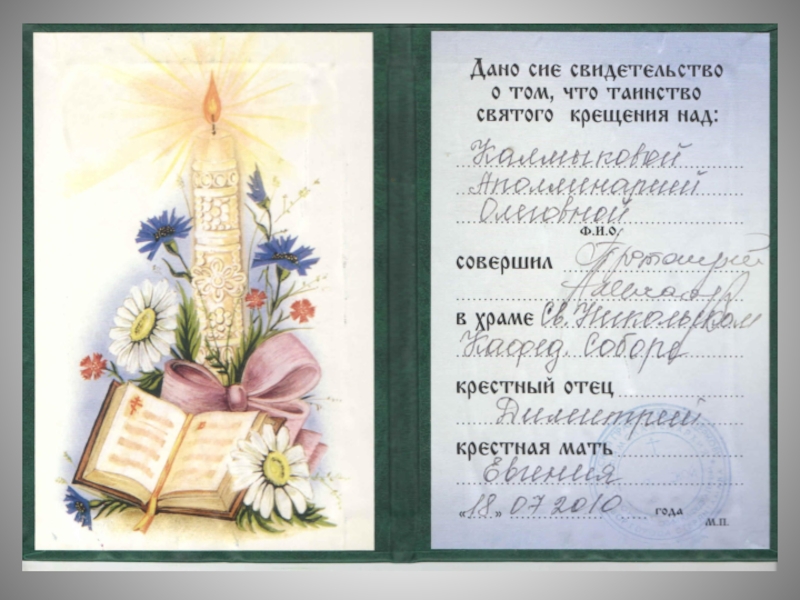 Дано сие свидетельство
о том, что таинство
святого крещения над:
Калмыковой
Аполлинарией
Олеговной
Ф.И.О.
совершил Протоиерей
в храме Св. Никольском
Кафед. Соборе
крестный отец
Димитрий
крестная мать
Евгения
«18» 07 2010 года
М.П.